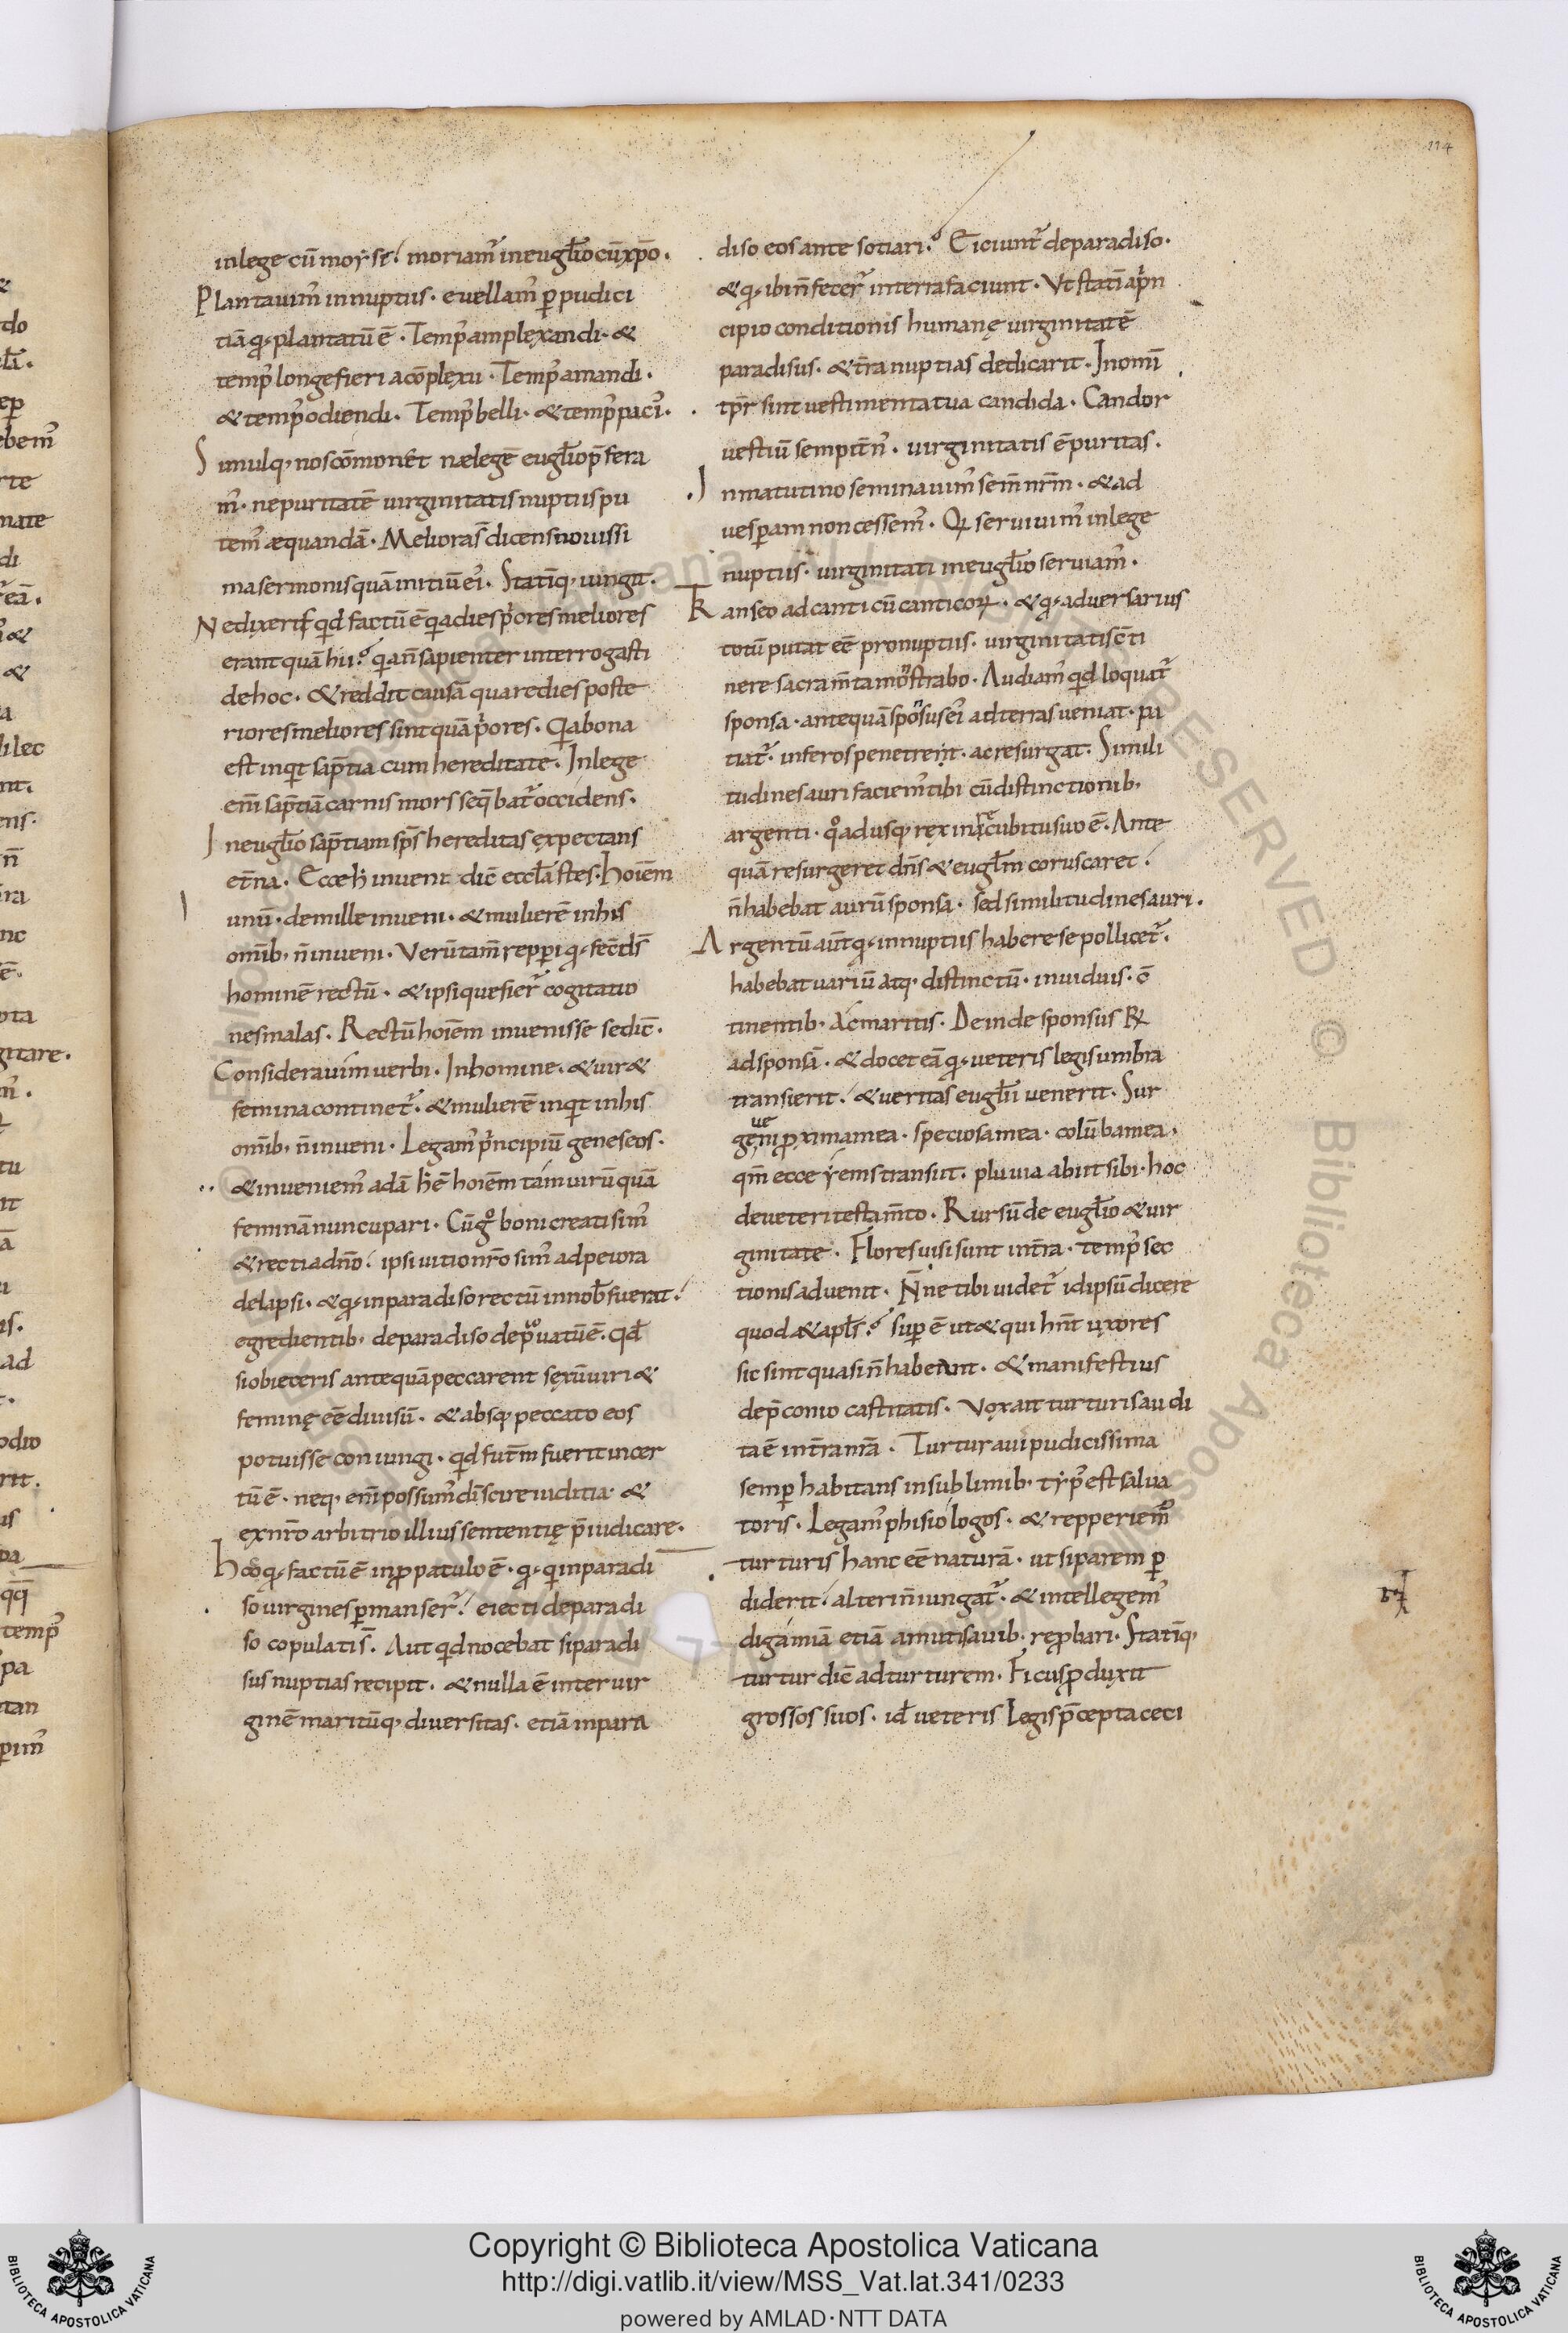 114
inlege cū moẏse⸵ moriam᷒ in eugl̄io cū xp̄o.
Plantauim᷒ in nuptiis. euellam᷒ ꝑ pudici
tiā qđ plantatū ē. Temp᷒ amplexandi. &
temp᷒ longe fieri a cōplexu. Temp᷒ amandi.
& temp᷒ odiendi. Temp᷒ belli. & temp᷒ pacis.
Simulq, nos cōmonet ne legē eugl̄io p̄fera
m᷒. ne puritatē uirginitatis nuptiis pu
tem᷒ æquandā. Meliora s̄ dicens nouissi
ma sermonis quā initiū ei᷒. Statīq, iungit.
Ne dixeris qid factū ē qia dies p̓ores meliores
erant quā hii? qia n̄ sapienter interrogasti
de hoc. & reddit causā quare dies poste
riores meliores sint quā p̓ores. Qia bona
est inqit sap̄tia cum hereditate. In lege
em̄ sap̄tiā carnis mors seq̄bat᷒ occidens.
In eugl̄io sap̄tiam sp̄s hereditas expectans
et̄na. Ecce h̓ inveni dic̄ eccl̄astes. hoīem
unū. de mille inveni. & mulierē in his
omīb, n̄ inveni. Verūtam̄ repperi qđ fec̄ ds̄
hominē rectū. & ipsi quesier᷒ cogitatio
nes malas. Rectū hoīem invenisse se dic̄.
Considera uim verbi. In homine. & uir &
femina continet᷒. & mulierē inqit in his
omīb, n̄ inveni. Legam᷒ p̓ncipiū geneseos.
& inveniem᷒ adā h̓ ē hoīem tam uirū quā
feminā nuncupari. Cū g̊ boni creati sim᷒
& recti a dn̄o⸵ ipsi uitio nr̄o sim᷒ ad peiora
delapsi. & qđ in paradiso rectū in nob̄ fuerat⸵
egredientib, de paradiso deprauatū ē. Qđ
si obieceris antequā peccarent sexū uiri &
feminę eē divisū. & absq, peccato eos
potuisse coniungi. qid futm̄ fuerit incer
tū ē. neq, em̄ possum᷒ dī scire iuditia. &
ex nr̄o arbitrio illius sententię p̄iudicare.
Hoc qđ factū ē in propatulo ē. qđ qi in paradi
so uirgines ꝑmanser᷒⸵ eiecti de paradi
so copulati s̄. Aut qid nocebat si paradi
sus nuptias recipit. & nulla ē inter uir
ginē maritūq, diversitas. etiā in para
diso eos ante sotiari? Eiciunt᷒ de paradiso.
& qđ ibi n̄ fecer᷒ in terra faciunt. Ut statī a p̓n
cipio conditionis humanę uirginitatē
paradisus. & t̄ra nuptias dedicarit. In omī
tp̄r sint uestimenta tua candida. Candor
uestiū sempit̄n᷒. uirginitatis ē puritas.
In matutino seminauim᷒ sem̄ nr̄m. & ad
uesꝑam non cessem᷒. Qi seruiuim᷒ in lege
nuptiis. uirginitati in eugl̄io seruiam᷒.
Transeo ad canticū canticoꝝ. & qđ adversarius
totū putat eē pro nuptiis. uirginitatis cōti
nere sacram̄ta mōstrabo. Audiam᷒ qid loquat᷒
sponsa. antequā sponsus ei᷒ ad terras ueniat. pa
tiat᷒. inferos penetret. ac resurgat. Simili
tudines auri faciem᷒ tibi cū distinctionib,
argenti. q̊adusq, rex in accubitu suo ē. Ante
quā resurgeret dn̄s & eugl̄m coruscaret⸵
n̄ habebat aurū sponsa. sed similitudines auri.
Argentū aut̄ qđ in nuptiis habere se pollicet᷒.
habebat uariū atq, distinctū. in uiduis. cō
tinentib, ac maritis. Deinde sponsus Rx
ad sponsā. & docet eā qđ ueteris legis umbra
transierit⸵ & ueritas eugl̄ii venerit. Sur
ge ueni ꝓxima mea. speciosa mea. colūba mea.
qm̄ ecce ẏems transiit. pluuia abiit sibi. hoc
de veteri testam̄to. Rursū de eugl̄io & uir
ginitate. Flores uisi sunt in t̄ra. temp᷒ sec
tionis advenit. N̄ne tibi uidet᷒ id ipsū dicere
quod & apl̄s? Temp᷒ breve super ē ut & qui hn̄t uxores
sic sint quasi n̄ habeant. & manifestius
de p̄conio castitatis. Vox ait turturis audi
ta ē in t̄ra nr̄a. Turtur avi pudicissima
semꝑ habitans in sublimib, tẏp᷒ est salua
toris. Legam᷒ phisiologos. & repperiem᷒
turturis hanc eē naturā. ut si parem ꝑ
diderit⸵ alteri n̄ iungat᷒. & intellegem᷒
digamiā etiā a mutis auib, reꝓbari. Statīq,
turtur dic̄ ad turturem. Ficus ꝓduxit
grossos suos. id̄ ueteris legis p̄cepta ceci
Copyright © Biblioteca Apostolica Vaticana
http://digi.vatlib.it/view/MSS_Vat.lat.341/0233
powered by AMLAD·NTT DATA